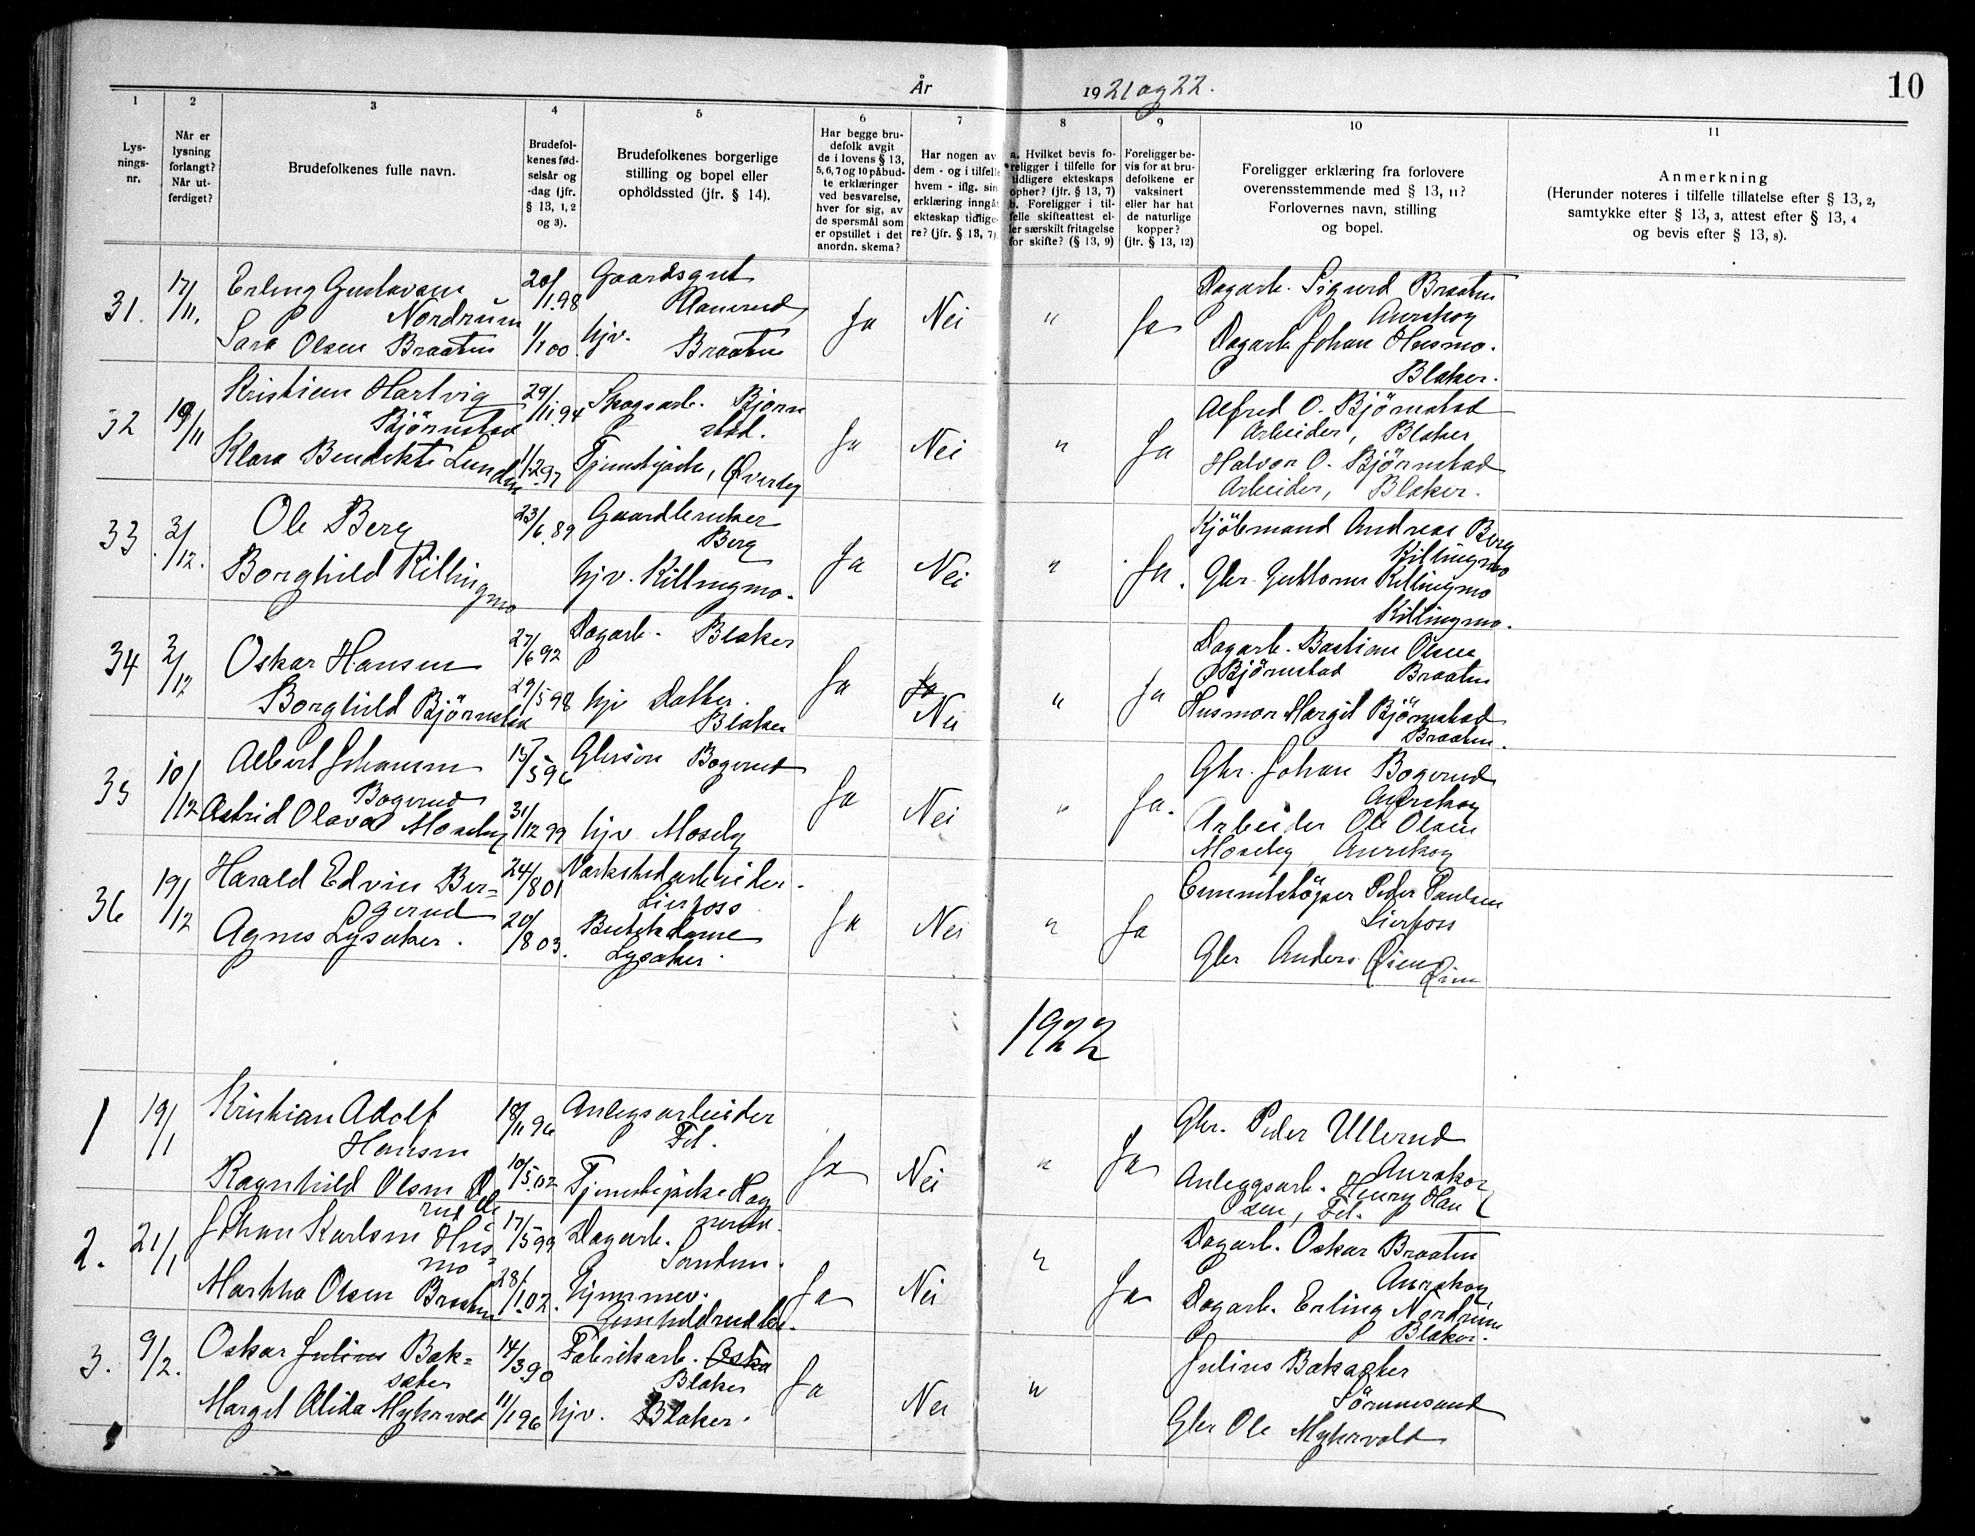 10
År 1921 og 22.
1 2 3 4 5 6 7 8 9 10 11
Lys-
nings-
nr.
Når er
lysning
forlangt?
Når ut-
ferdiget?
Brudefolkenes fulle navn.
Brudefol-
kenes fød-
selsår og
-dag (jfr.
§ 13, 1, 2
og 3).
Brudefolkenes borgerlige
stilling og bopel eller
opholdssted (jfr. § 14).
Har begge bru-
defolk avgit
de i lovens § 13,
5, 6, 7 og 10 påbud-
te erklæringer
ved besvarelse,
hver for sig, av
de spørsmål som
er opstillet i det
anordn. skema?
Har nogen av
dem - og i tilfelle
hvem - iflg. sin
erklæring inngåt
ekteskap tidlige-
re? (jfr. § 13, 7)
a. Hvilket bevis fo-
religger i tilfelle for
tidligere ekteskaps
ophør? (jfr. § 13, 7)
b. Foreligger i til-
felle skifteattest el-
ler særskilt fritagelse
for skifte? (§ 13, 9)
Foreligger be-
vis for at bru-
defolkene er
vaksinert
eller har hat
de naturlige
kopper?
(jfr. § 13, 12)
Foreligger erklæring fra forlovere
overensstemmende med § 13, 11?
Forlovernes navn, stilling
og bopel.
Anmerkning
(Herunder noteres i tilfelle tillatelse efter § 13, 2,
samtykke efter § 13, 3, attest efter § 13, 4
og bevis efter § 13, 8).
31. 17/11.
Erling Gustavsen
Nordrum
20/1 98
Gaardsgut
Ja Nei " Ja
Dagarb. Sigurd Braaten
Aurskog
Sara Olsen Braaten
1/1 00
hjv.
Braaten
Dagarb Johan Husmo.
Blaker.
32 19/11
Kristian Hartvig
Bjørnstad
29/11 94
Skogsarb. Bjørn
stad.
Ja Nei " Ja
Alfred O. Bjørnstad
Arbeider, Blaker
Klara Bendikte Lunder
Tjenestepike, Øverby
Halvor O. Bjørnstad
Arbeider, Blaker.
33 2/12.
Ole Berg
23/6 89
Gaardbruker
Berg
Ja Nei " Ja.
Kjöbmand Andreas Berg
Killingmo
Borghild Killingmo
hjv. Killingmo.
Gbr. Guttorm Killingmo
Killingmo.
34 2/12
Oskar Hansen
27/6 92
Dagarb. Blaker
Ja Ja Nei " Ja
Dagarb. Bastian Olsen
Bjørnstad Braaten
Borghild Bjørnstad
29/5 98
hjv Datter.
Blaker
Margit Bjørnstad
Braaten.
35 10/12
Albert Johansen
Bogerud
15/5 96
Gbrsön Bogerud
Ja Nei " Ja.
Gbr. Johan Bogerud
Aurskog
Astrid Olava Moseby
31/12 99
hjv Moseby
Arbeider Ole Olsen
Moseby, Aurskog
36 19/12
Harald Edvin Ber-
gerud
24/8 01
Verkstedarbeider.
Lierfoss
Ja Nei " Ja
Cementstöper Peder Paulsen
Lierfoss
Agnes Lysaker.
20/8 03.
Butikdame
Lysaker.
Gbr Anders Øien
Øien
1922
1 19/1
Kristian Adolf
Hansen
18/11 96
Anlegsarbeider
Fet.
Ja Nei " Ja
Gbr. Peder Ullerud
Aurskog
Ragnhild Olsen
10/5 02
Tjenestepike
Anleggsarb. Henry Han
sen, Fet.
2. 21/1
Johan Karlsen Hus-
mo
17/5 99
Dagarb.
Ja Nei " Ja
Dagarb. Oskar Braaten
Aurskog
Martha Olsen Braaten
28/1 02.
hjemmev.
Dagarb. Erling Nordrum
Blaker.
3. 9/2.
Oskar Julius Bak-
sæter
14/3 90
Fabrikarb.
Blaker
Ja Nei "
Julius Baksæter
Sörumsand
Margit Alida Myhrvold
11/1 96
hjv. Blaker.
Gbr Ole Myhrvold